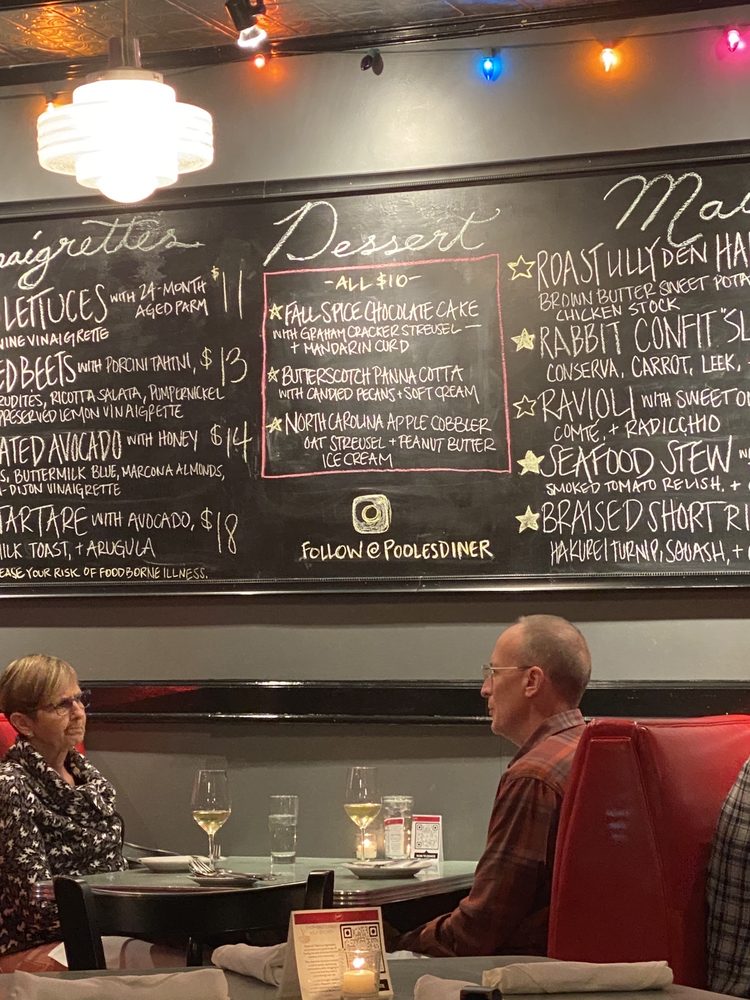 aigrettes
LETTUCES WITH 24-MONTH $11
AGED PARM
WINE VINAIGRETTE
ED BEETS WITH PORCINI TAHINI, $13
RUDITES, RICOTTA SALATA, PUMPERNICKEL
PRESERVED LEMON VINAIGRETTE
ATED AVOCADO WITH HONEY $14
S, BUTTERMILK BLUE, MARCONA ALMONDS,
- DIJON VINAIGRETTE
TARTARE WITH AVOCADO, $18
MILK TOAST, + ARUGULA
EASE YOUR RISK OF FOODBORNE ILLNESS.
Dessert
-ALL $10-
FALL SPICE CHOCOLATE CAKE
WITH GRAHAM CRACKER STREUSEL
+ MANDARIN CURD
BUTTERSCOTCH PANNA COTTA
WITH CANDIED PECANS + SOFT CREAM
NORTH CAROLINA APPLE COBBLER
OAT STREUSEL + PEANUT BUTTER
ICE CREAM
FOLLOW @POOLESDINER
Ma
ROAST LILLY DEN HA
BROWN BUTTER SWEET POTA
CHICKEN STOCK
RABBIT CONFIT "SL
CONSERVA, CARROT, LEEK,
RAVIOLI WITH SWEET ON
COMTE, + RADICCHIO
SEAFOOD STEW W
SMOKED TOMATO RELISH, +
BRAISED SHORT RI
HAKUREI TURNIP, SQUASH, +